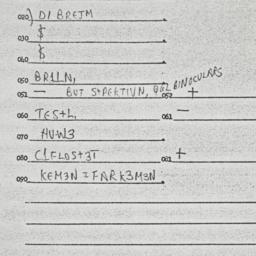 020) DI BRETM
030 $
040 $
050 BRILN,
051 — BUT STPEKTIVN, BINOCULARS
052 +
060 TESTL,
061 —
070 HUW3
080 CLFLOST3T
081 +
090 KEM3N = FARK3M3N